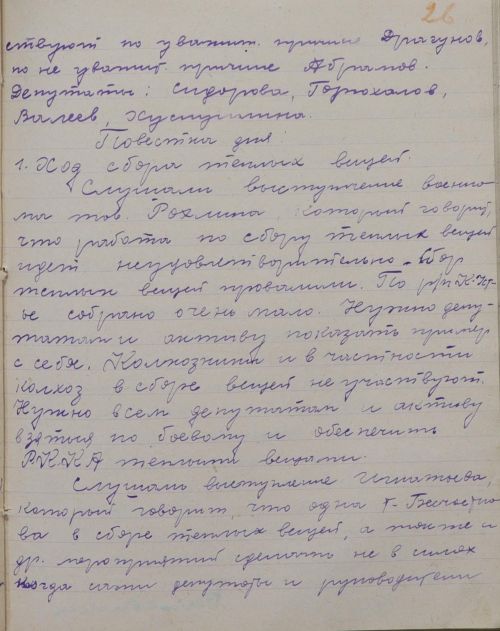 26
ствуют по уважит. причине Драгунов,
по не уважит. причине Абрамов.
Депутаты: Сидорова, Горохалов,
Валеев, Хуснулина.
Повестка дня:
1. Ход сбора теплых вещей.
Слушали выступление военко-
ма тов. Рохлина, который говорит,
что работа по сбору теплых вещей
идет неудовлетворительно. Сбор
теплых вещей провалили. По
собрано очень мало. Нужно депу-
татам и активу показать пример
с себя. Колхозники и в частности
колхоз в сборе вещей не участвуют.
Нужно всем депутатам и активу
взяться по боевому и обеспечить
РККА теплыми вещами.
Слушали выступление Игнатьева,
который говорит, что одна т. Бесчастно-
ва в сборе теплых вещей, а также и
др. мероприятий сделать не в силах
когда сами депутаты и руководители